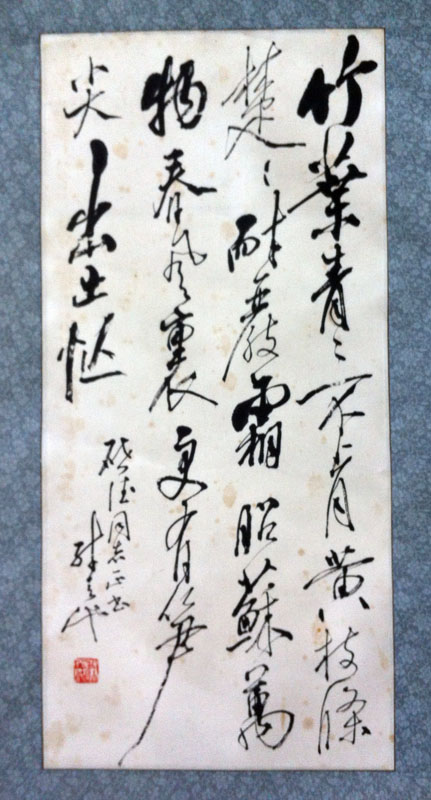 竹葉青〻不肯黄枝條
楚〻耐嚴霜昭蘇萬
物春風裏更有筍
尖出土忙
同志正